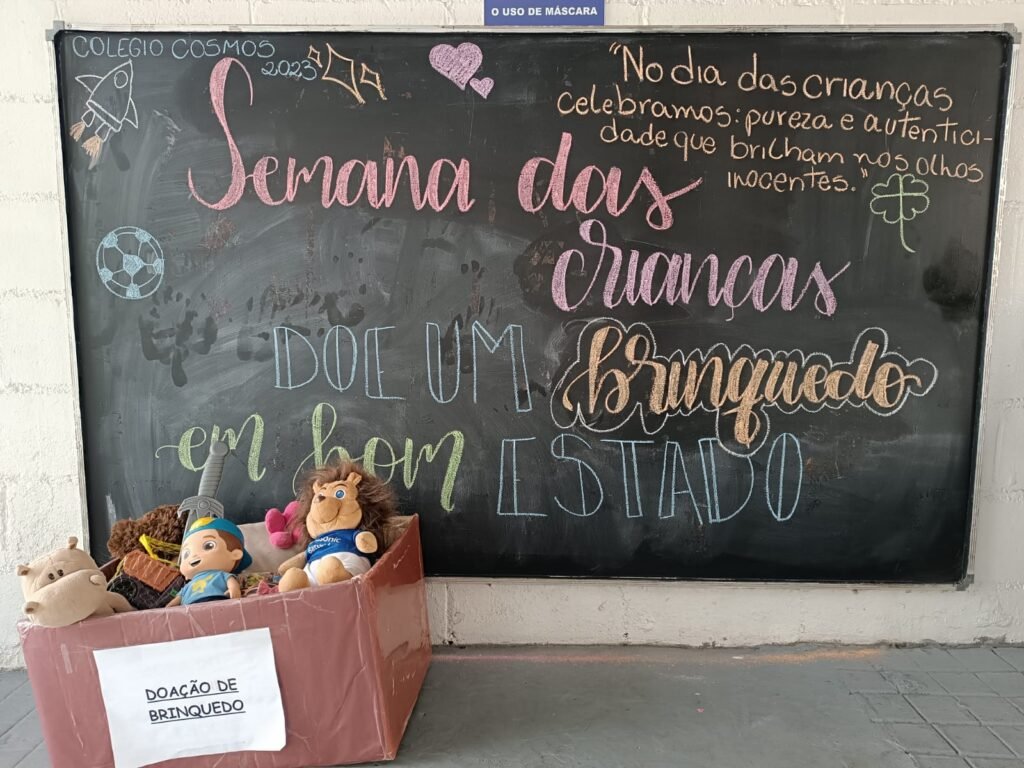 O USO DE MÁSCARA
COLEGIO COSMOS
2023
"No dia das crianças
celebramos: pureza e autentici-
dade que brilham nos olhos
inocentes."
Semana das
crianças
DOE UM brinquedo
em bom ESTADO
DOAÇÃO DE
BRINQUEDO